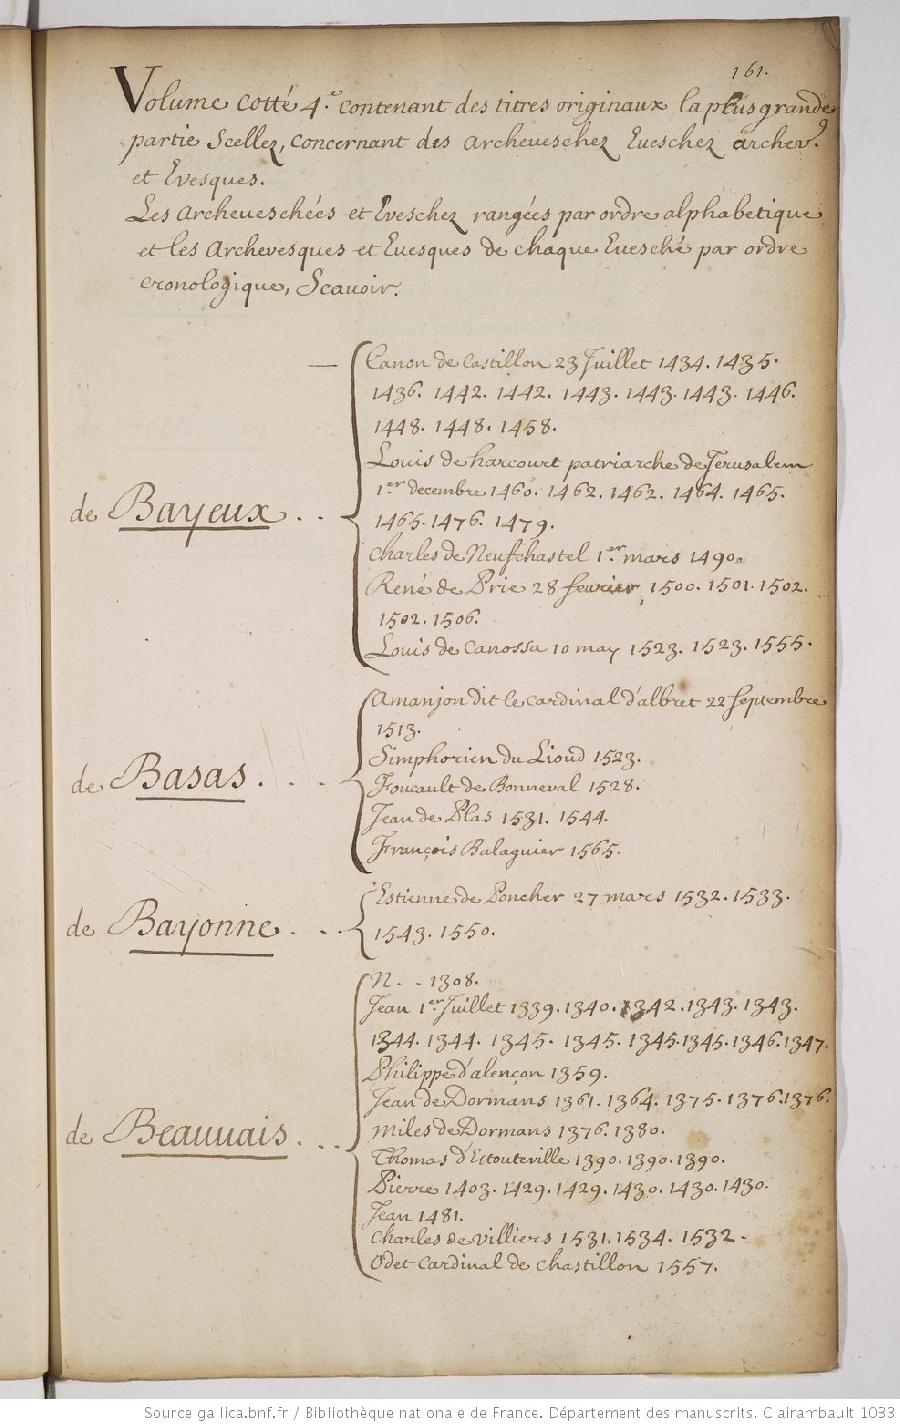 161.
Volume cotté 4.e contenant des titres originaux la plus grande
partie Scellez, concernant des archeueschez Eueschez archev.
et Evesques.
Les Archeueschées et Eveschez rangées par ordre alphabetique
et les Archevesques et Euesques de chaque Euesché par ordre
cronologique, Scauoir.
de Bayeux . .
Canon de Castillon 23 Juillet 1434. 1435.
1436. 1442. 1442. 1443. 1443. 1443. 1446.
1448. 1448. 1458.
Louis de harcourt patriarche de Jerusalem
1.er decembre 1460. 1462. 1462. 1464. 1465.
1465. 1476. 1479.
Charles de Neufchastel 1.er mars 1490.
René de Prie 28 feurier, 1500. 1501. 1502.
1502. 1506.
Louis de Canossa 10 may 1523. 1523. 1555.
de Basas . . .
Amanjon dit le cardinal d'albret 22 Septembre
1513.
Simphorien du Lioud 1523.
Foucault de Bonneval 1528.
Jean de Plas 1531. 1544.
François Balaguier 1565.
de Bayonne . . .
Estienne de Poncher 27 mars 1532. 1533.
1543. 1550.
de Beauuais . . .
N. . . 1308.
Jean 1.er Juillet 1339. 1340. 1342. 1343. 1343.
1344. 1344. 1345. 1345. 1345. 1345. 1346. 1347.
Philippe d'alençon 1359.
Jean de Dormans 1361. 1364. 1375. 1376. 1376.
Miles de Dormans 1376. 1380.
Thomas d'Estouteville 1390. 1390. 1390.
Pierre 1403. 1429. 1429. 1430. 1430. 1430.
Jean 1481.
Charles de villiers 1531. 1534. 1532.
Odet Cardinal de Chastillon 1557.
Source gallica.bnf.fr / Bibliothèque nationale de France. Département des manuscrits. Clairambault 1033